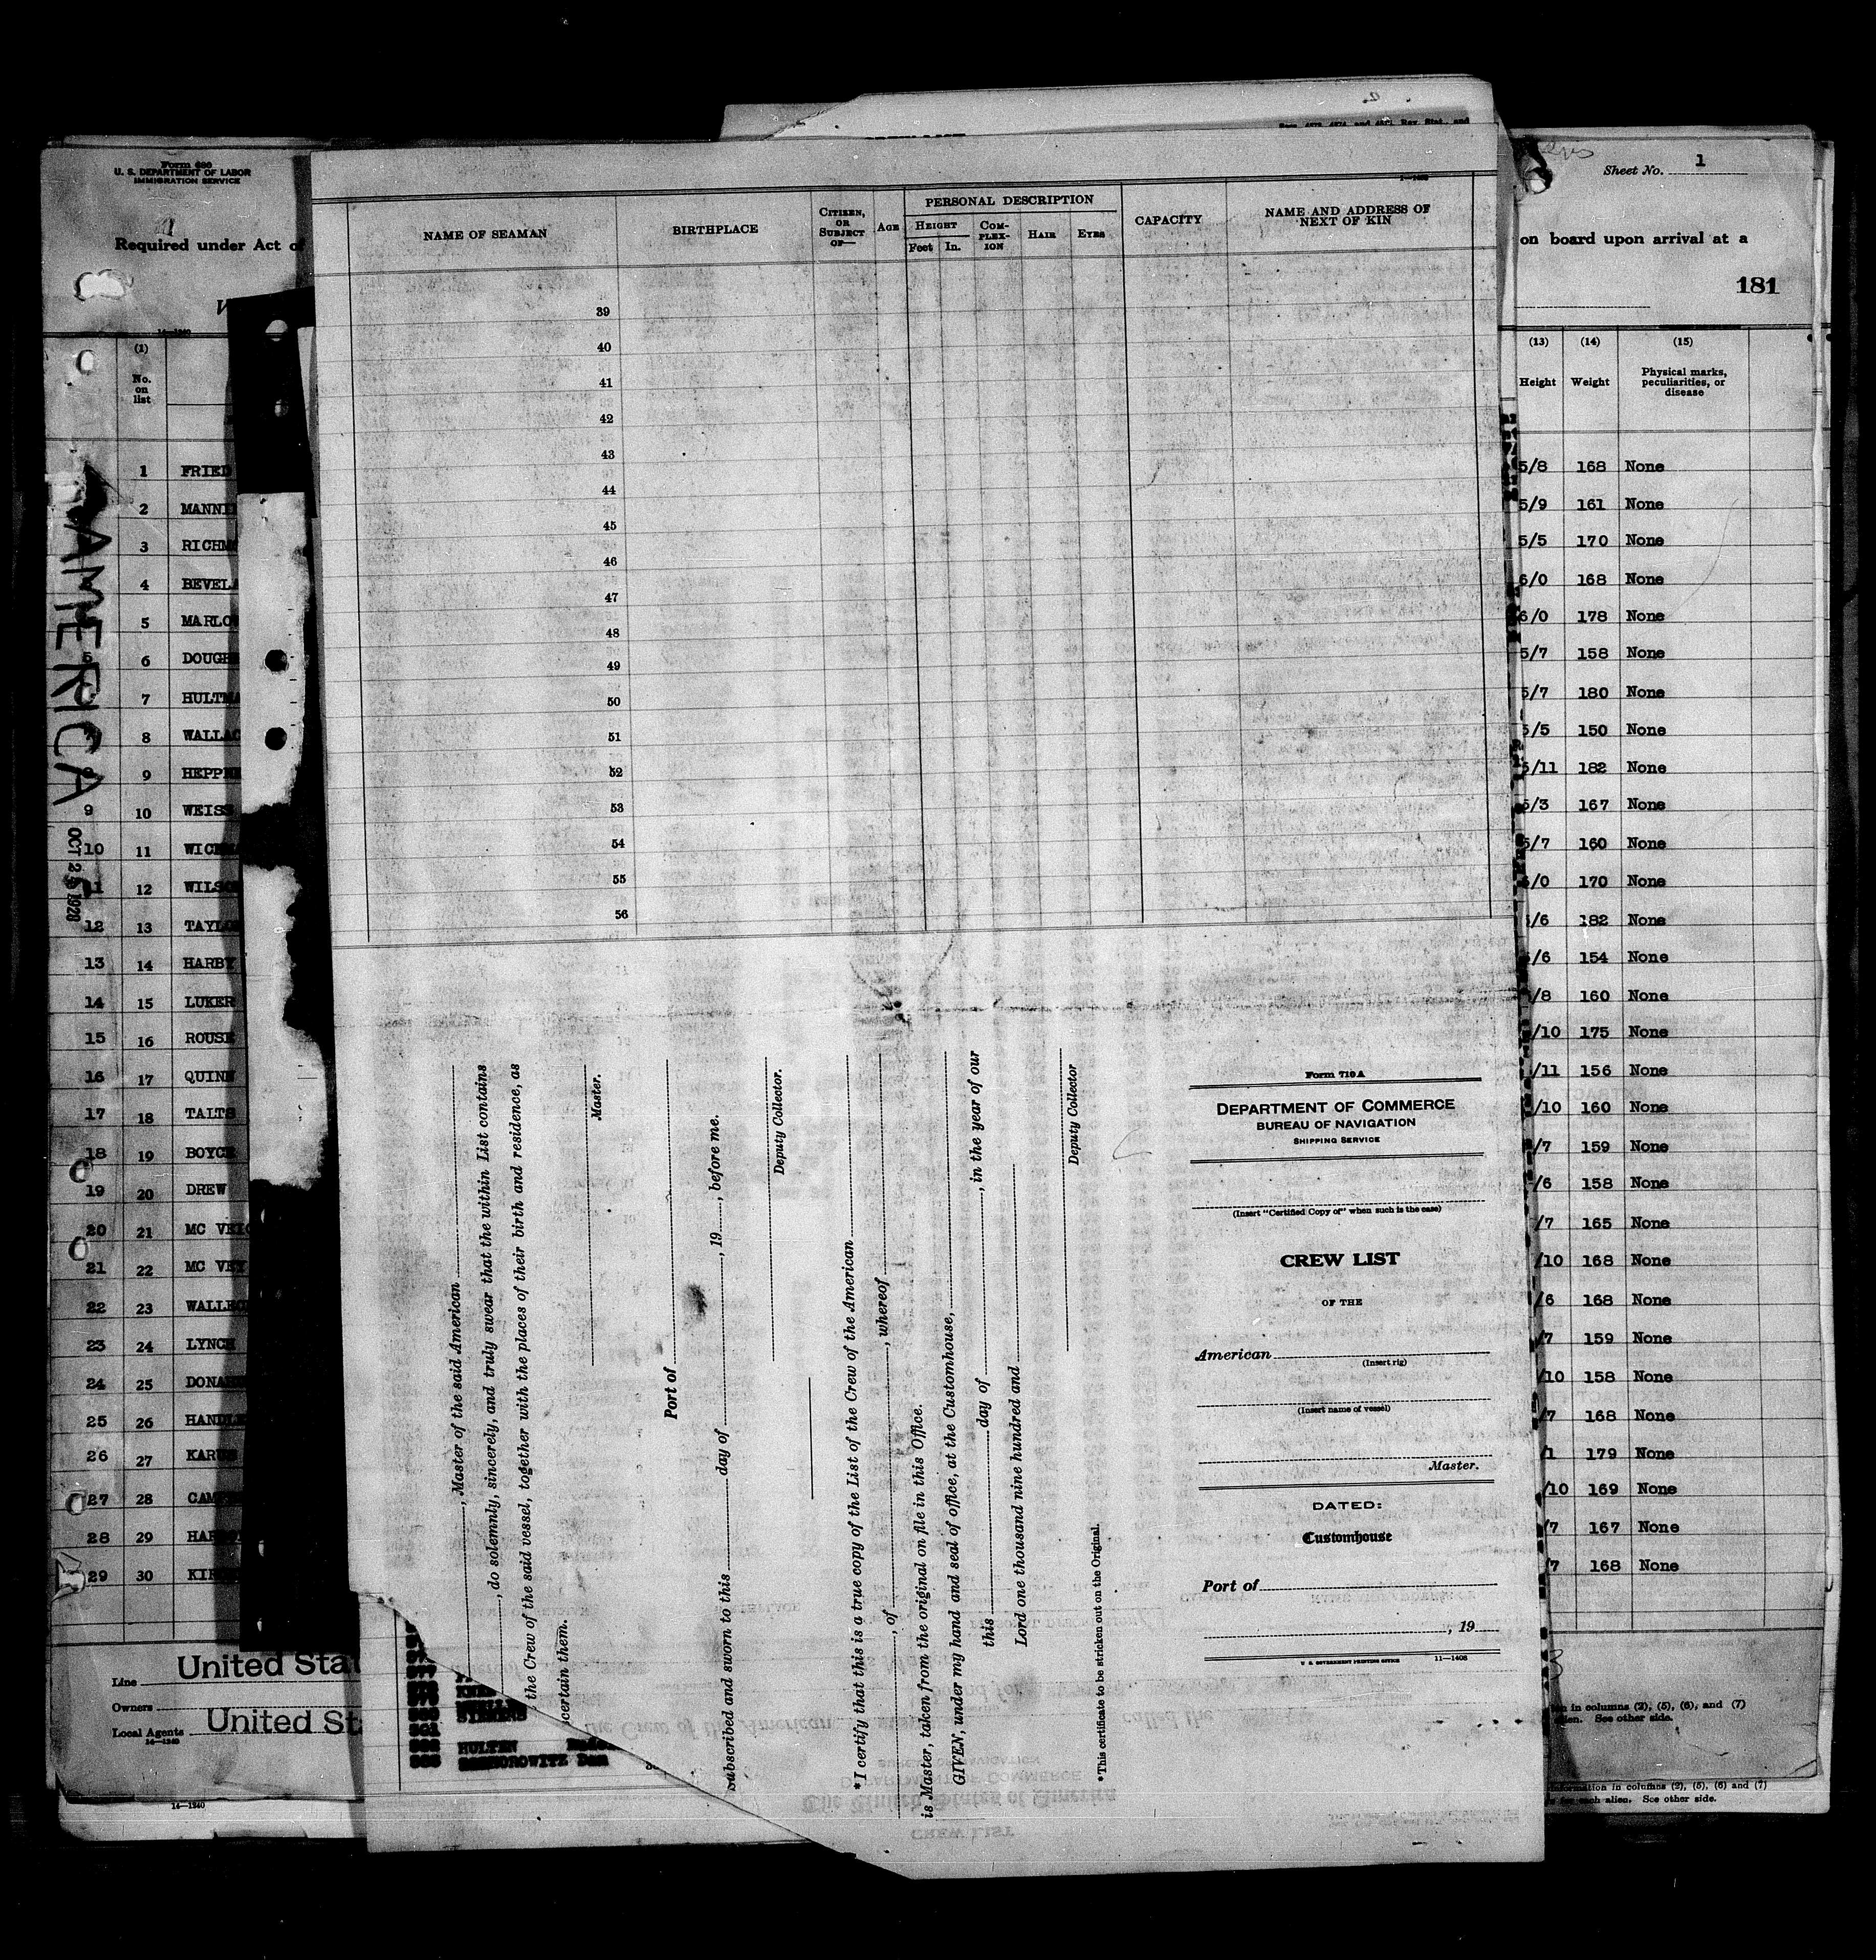 Form 680
U. S. DEPARTMENT OF LABOR
IMMIGRATION SERVICE
Required under Act of
14—1240
(1)
No.
on
list
1 FRIED
2 MANNI
3 RICHM
4 BEVELA
5 MARLO
6 DOUGH
7 HULTMA
8 WALLAC
9 HEPPE
9 10 WEISS
10 11 WICK
11 12 WILSO
12 13 TAYLO
13 14 HARBY
14 15 LUKER
15 16 ROUSE
16 17 QUINN
17 18 TALTS
18 19 BOYCE
19 20 DREW
20 21 MC VEIG
21 22 MC VEY
22 23 WALLE
23 24 LYNCH
24 25 DONA
25 26 HANDL
26 27 KARU
27 28 CAM
28 29 HAR
29 30 KI
AMERICA
OCT 1928
Line United Stat
Owners
Local Agents United St
14—1240
14—1240
Secs. 4573, 4574, and 4575, Rev. Stat., and
NAME OF SEAMAN
BIRTHPLACE
CITIZEN,
OR
SUBJECT
OF—
AGE
PERSONAL DESCRIPTION
HEIGHT
Feet In.
COM-
PLEX-
ION
HAIR
EYES
CAPACITY
NAME AND ADDRESS OF
NEXT OF KIN
39
40
41
42
43
44
45
46
47
48
49
50
51
52
53
54
55
56
, Master of the said American
, do solemnly, sincerely, and truly swear that the within List contains
the Crew of the said vessel, together with the places of their birth and residence, as
certain them.
Master.
Port of
ubscribed and sworn to this day of , 19 , before me.
Deputy Collector.
*I certify that this is a true copy of the List of the Crew of the American
, of , whereof
is Master, taken from the original on file in this Office.
GIVEN, under my hand and seal of office, at the Customhouse,
this day of , in the year of our
Lord one thousand nine hundred and
Deputy Collector
*This certificate to be stricken out on the Original.
Form 710A
DEPARTMENT OF COMMERCE
BUREAU OF NAVIGATION
SHIPPING SERVICE
(Insert "Certified Copy of" when such is the case)
CREW LIST
OF THE
American
(Insert rig)
(Insert name of vessel)
Master.
DATED:
Customhouse
Port of
, 19
U. S. GOVERNMENT PRINTING OFFICE 11—1408
HULTEN
Dan
Sheet No. 1
on board upon arrival at a
181
(13) (14) (15)
Height Weight Physical marks,
peculiarities, or
disease
5/8 168 None
5/9 161 None
5/5 170 None
6/0 168 None
6/0 178 None
5/7 158 None
5/7 180 None
5/5 150 None
5/11 182 None
5/3 167 None
5/7 160 None
6/0 170 None
/6 182 None
/6 154 None
/8 160 None
/10 175 None
/11 156 None
/10 160 None
/7 159 None
/6 158 None
/7 165 None
/10 168 None
/6 168 None
/7 159 None
/10 158 None
/7 168 None
/1 179 None
/10 169 None
/7 167 None
/7 168 None
in columns (2), (5), (6), and (7)
alien. See other side.
information in columns (2), (5), (6) and (7)
for each alien. See other side.